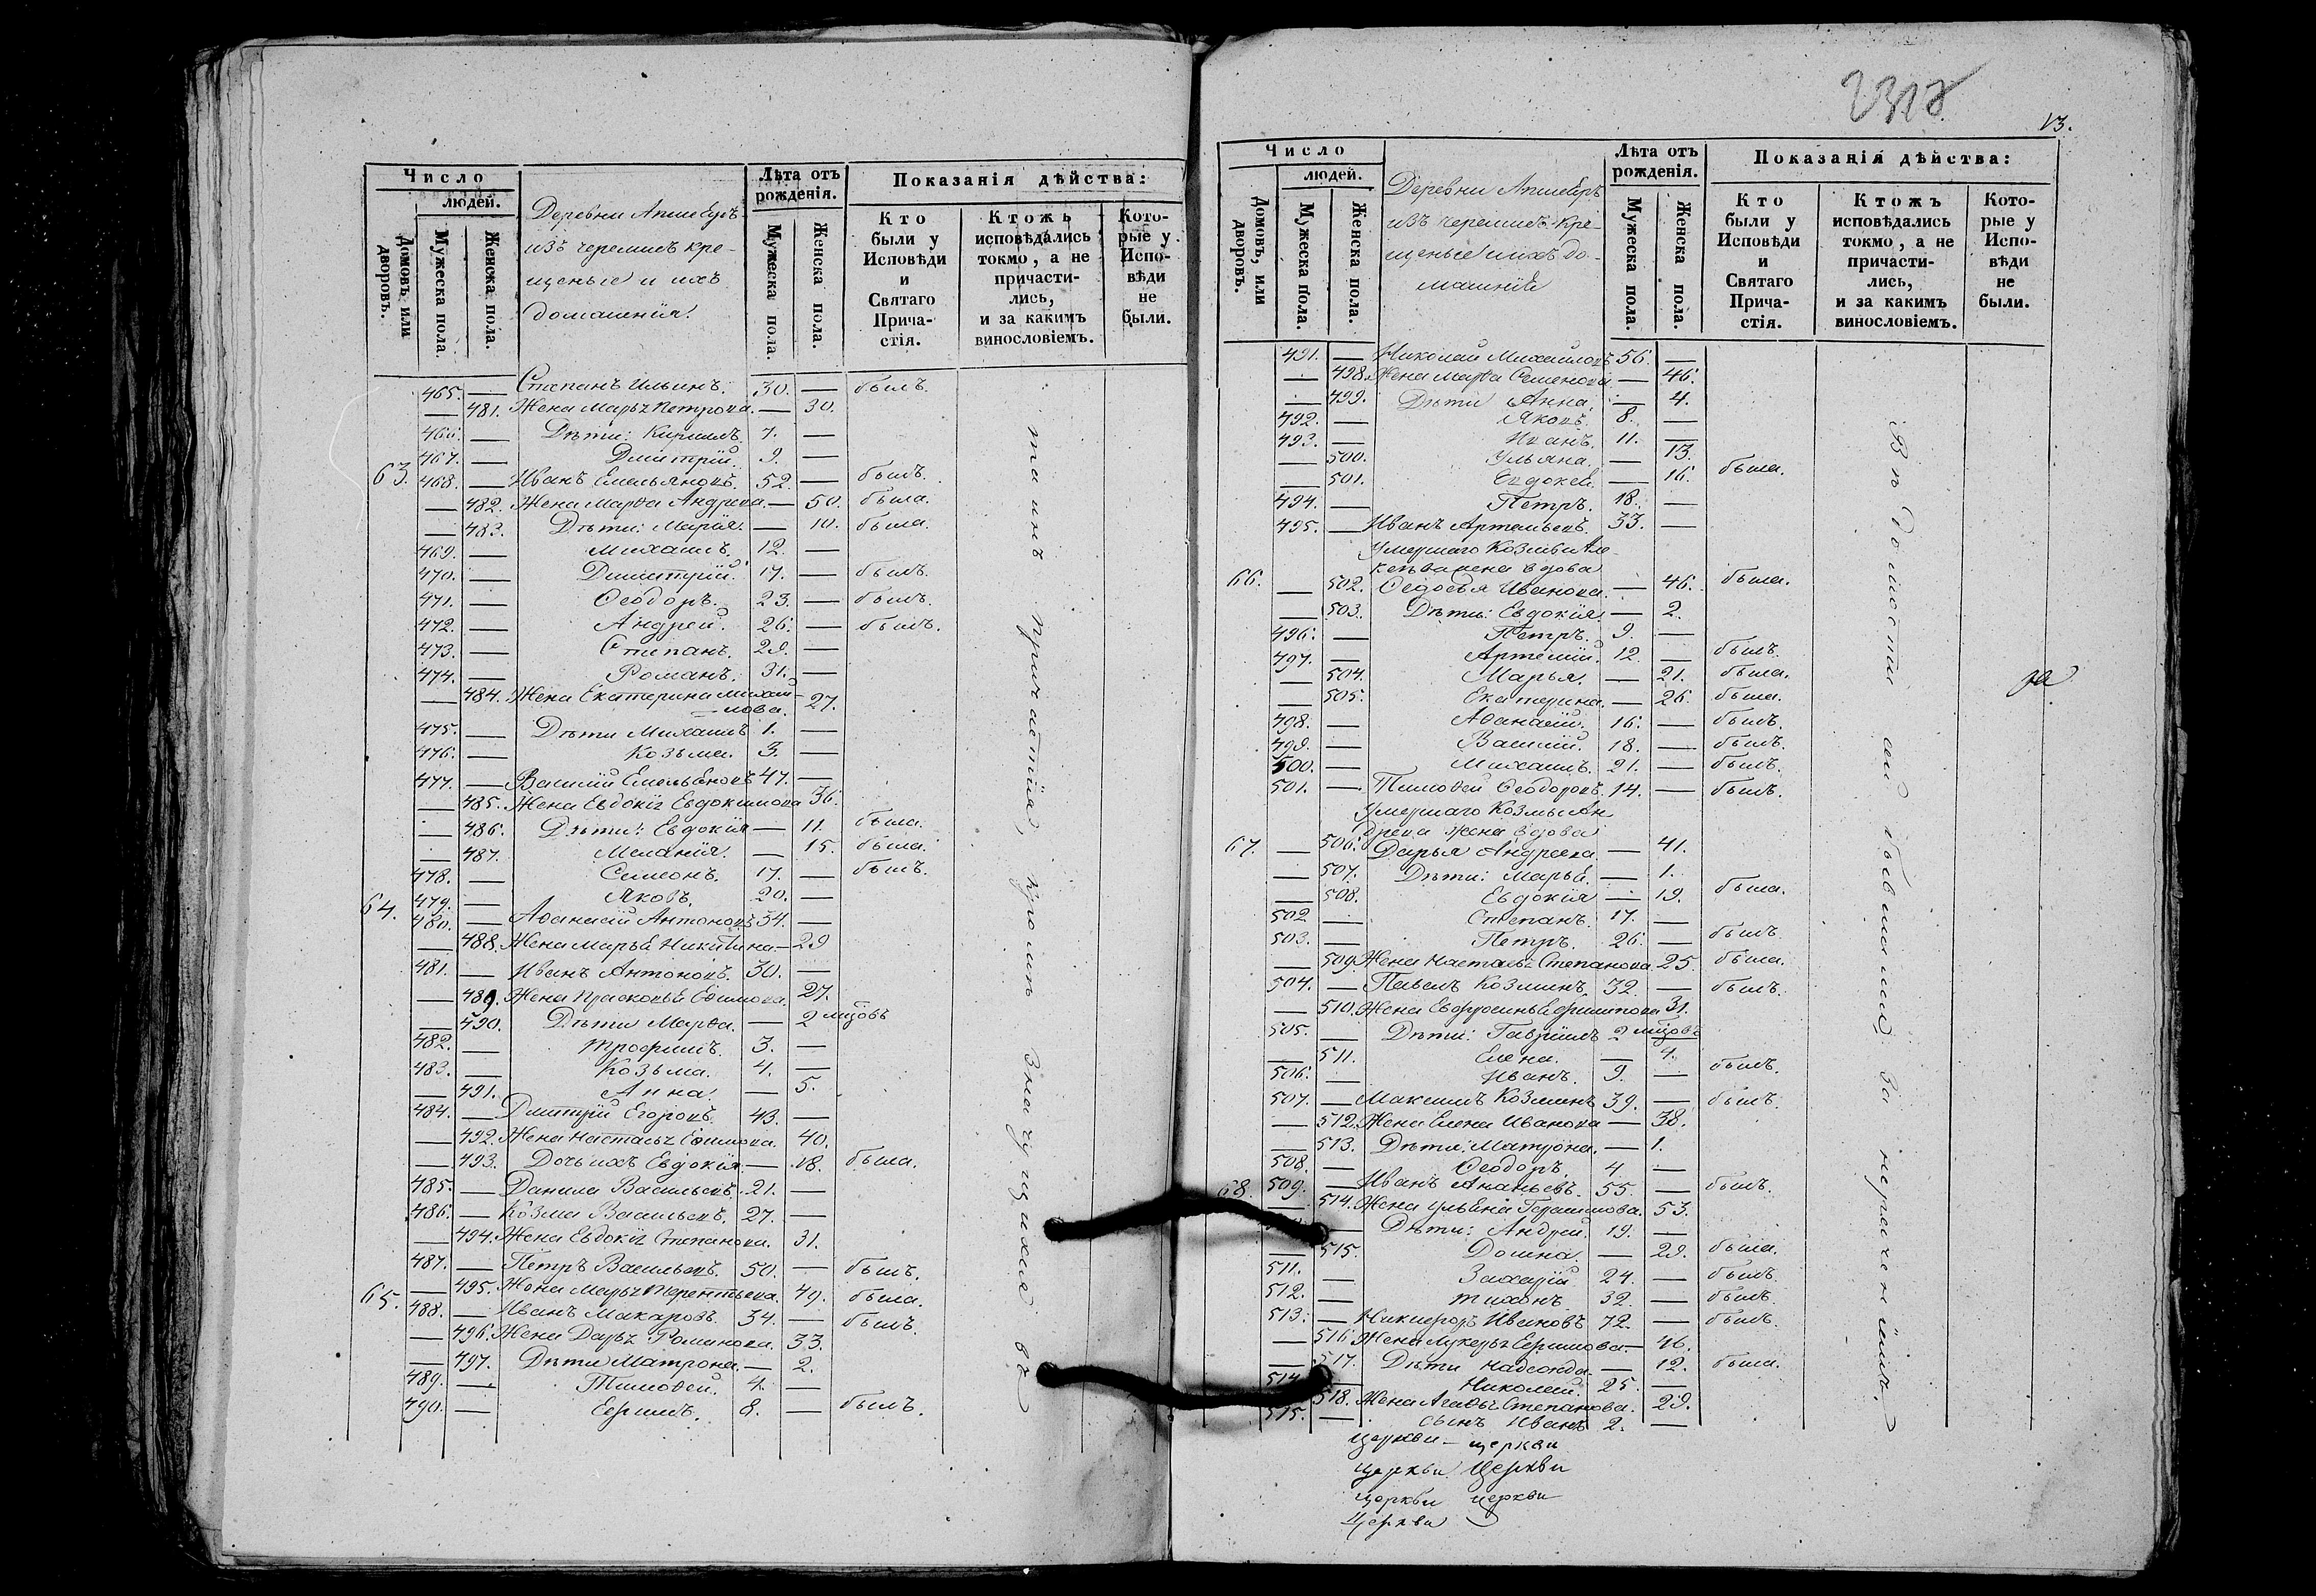 Число
людей.
Домовъ или дворовъ.
Мужеска пола.
Женска пола.
Деревни Апшебуръ
изъ черемисъ кре-
щеные и ихъ
домашнія.
Лѣта отъ
рожденія.
Мужеска пола.
Женска пола.
Показанія дѣйства:
Кто
были у
Исповѣди
и
Святаго
Прича-
стія.
Ктожъ
исповѣдались
токмо, а не
причасти-
лись,
и за какимъ
винословіемъ.
Кото-
рые у
Испо-
вѣди
не
были.
465. — Степанъ Ильинъ. 30. — былъ.
— 481. Жена Марья Петрова. — 30.
466. — Дѣти: Кирилъ. 7. —
467. — Дмитрій. 9. —
63. 468. — Иванъ Емельяновъ. 52. — былъ.
— 482. Жена Марѳа Андреева. — 50. была.
— 483. Дѣти: Марія. — 10. была.
469. — Михаилъ. 12. —
470. — Димитрій. 17. — былъ.
471. — Ѳеодоръ. 23. — былъ.
472. — Андрей. 26. — былъ.
473. — Степанъ. 29. —
474. — Романъ. 31. —
— 484. Жена Екатерина Михай-
лова. 27.
475. — Дѣти Михаилъ 1. —
476. — Козьма. 3. —
477. — Василій Емельяновъ 47. —
— 485. Жена Евдокія Евдокимова 36.
— 486. Дѣти: Евдокія — 11. была.
— 487. Меланія. — 15. была.
478. — Симеонъ. 17. — былъ.
479. — Яковъ. 20. —
64. 480. — Аѳанасій Антоновъ 34. —
— 488. Жена Марья Никитина — 29
481. — Иванъ Антоновъ. 30. —
— 489. Жена Прасковья Ефимова. 27.
— 490. Дѣти Марѳа. — 2 мѣсцовъ
482. — Трофимъ. 3. —
483. — Козьма. 4. —
— 491. Анна. — 5.
484. — Дмитрій Егоровъ. 43. —
— 492. Жена Настасья Ефимова. 40.
— 493. Дочь ихъ Евдокія. — 18. была.
485. — Данила Васильевъ. 21. —
486. — Козма Васильевъ. 27. —
— 494. Жена Евдокія Степанова. 31.
487. — Петръ Васильевъ. 50. — былъ.
— 495. Жена Марья Терентьева. 49. была.
65. 488. — Иванъ Макаровъ. 34. — былъ.
— 496. Жена Дарья Романова. 33.
— 497. Дѣти Матрона. — 2.
489. — Тимоѳей. 4. —
490. — Ефимъ. 8. — былъ.
таинъ причастія, кромѣ значущихся въ
13.
Число
людей.
Домовъ, или дворовъ.
Мужеска пола.
Женска пола.
Деревни Апшебуръ
изъ черемисъ кре-
щеные и ихъ до-
машніе
Лѣта отъ
рожденія.
Мужеска пола.
Женска пола.
Показанія дѣйства:
Кто
были у
Исповѣди
и
Святаго
Прича-
стія.
Ктожъ
исповѣдались
токмо, а не
причасти-
лись,
и за какимъ
винословіемъ.
Кото-
рые у
Испо-
вѣди
не
были.
491. — Николай Михайловъ 56. —
— 498. Жена Марѳа Семенова. — 46.
— 499. Дѣти Анна. — 4.
492. — Яковъ. 8. —
493. — Иванъ. 11. —
— 500. Ульяна. — 13.
— 501. Евдокея. — 16. была.
494. — Петръ. 18. —
495. — Иванъ Артемьевъ. 33. —
Умершаго Козьмы Але-
вдова
66. — 502. Ѳедосья Иванова. — 46. была.
— 503. Дѣти: Евдокія. — 2.
496. — Петръ. 9. —
497. — Артемій. 12. — былъ.
— 504. Марья. — 21. была.
— 505. Екатерина. — 26. была.
498. — Аѳанасій. 16. — былъ.
499. — Василій. 18. — былъ.
500. — Михаилъ. 21. — былъ.
501. — Тимоѳей Ѳеодоровъ. 14. — былъ.
Умершаго Козмы Ан
дреева жена вдова
67. — 506. Дарья Андреева. — 41.
— 507. Дѣти: Марья. — 1.
— 508. Евдокія — 19. была.
502 — Степанъ. 17. —
503. — Петръ. 26. — былъ.
— 509. Жена Настасья Степанова 25. была.
504. — Павелъ Козминъ. 32. — былъ.
— 510. Жена Евфросинья Ефимова 31.
505. — Дѣти: Гавріилъ 2 мѣсцовъ
— 511. Елена. — 4.
506. — Иванъ. 9. — былъ.
507. — Максимъ Козминъ 39. — былъ.
— 512. Жена Елена Иванова — 38.
— 513. Дѣти: Матрона. — 1.
508. — Ѳеодоръ. 4. —
68. 509. — Иванъ Ананьевъ. 55. — былъ.
— 514. Жена Ульяна Герасимова. 53.
— Дѣти: Андрей. 19. —
— 515. Домна. — 29. была.
511. — Захарій. 24. — былъ.
512. — Тихонъ. 32. — былъ.
513. — Никифоръ Ивановъ 72. — былъ.
— 516 Жена Лукерья Ефимова — 46.
— 517. Дѣти Надежда. — 12. была.
514. — Николай. 25. —
518. Жена Агафья Степанова. 29.
515. — сынъ Иванъ 2. —
Вѣдомости сей бывшими за нереченіемъ.
Церкви — церкви
Церкви Церкви
Церкви церкви
Церкви